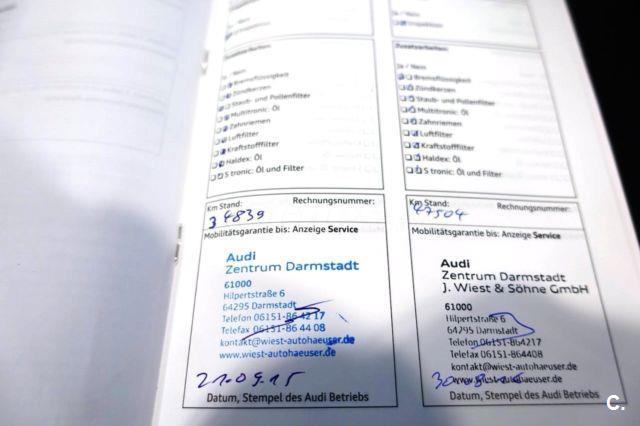 Inspektion
Zusatzarbeiten:
Ja / Nein
Bremsflüssigkeit
Zündkerzen
Staub- und Pollenfilter
Multitronic: Öl
Zahnriemen
Luftfilter
Kraftstofffilter
Haldex: Öl
S tronic: Öl und Filter
Km Stand:
Rechnungsnummer:
34839
Mobilitätsgarantie bis: Anzeige Service
Audi
Zentrum Darmstadt
61000
Hilpertstraße 6
64295 Darmstadt
Telefon 06151-86 42 17
Telefax 06151-86 44 08
kontakt@wiest-autohaeuser.de
www.wiest-autohaeuser.de
21.09.15
Datum, Stempel des Audi Betriebs
Zusatzarbeiten:
Ja / Nein
Bremsflüssigkeit
Zündkerzen
Staub- und Pollenfilter
Multitronic: Öl
Zahnriemen
Luftfilter
Kraftstofffilter
Haldex: Öl
S tronic: Öl und Filter
Km Stand:
Rechnungsnummer:
47504
Mobilitätsgarantie bis: Anzeige Service
Audi
Zentrum Darmstadt
J. Wiest & Söhne GmbH
61000
Hilpertstraße 6
64295 Darmstadt
Telefon 06151-864217
Telefax 06151-864408
kontakt@wiest-autohaeuser.de
www.wiest-autohaeuser.de
Datum, Stempel des Audi Betriebs
C.